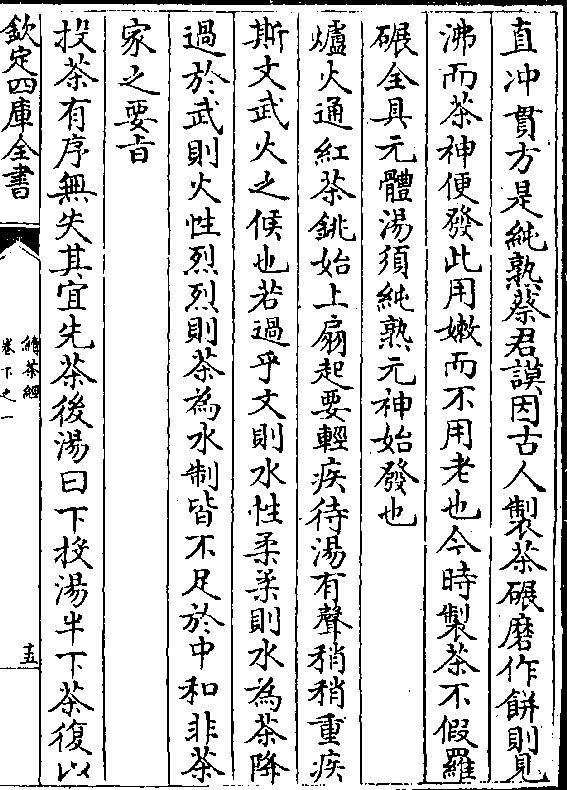 直冲貫方是純熟蔡君謨因古人製茶碾磨作餅則見
沸而茶神便發此用嫩而不用老也今時製茶不假羅
碾全具元體湯須純熟元神始發也
爐火通紅茶銚始上扇起要輕疾待湯有聲稍稍重疾
斯文武火之候也若過乎文則水性柔柔則水為茶降
過於武則火性烈烈則茶為水制皆不足於中和非茶
家之要旨
投茶有序無失其宜先茶後湯曰下投湯半下茶復以
欽定四庫全書
續茶經
卷下之一
十五